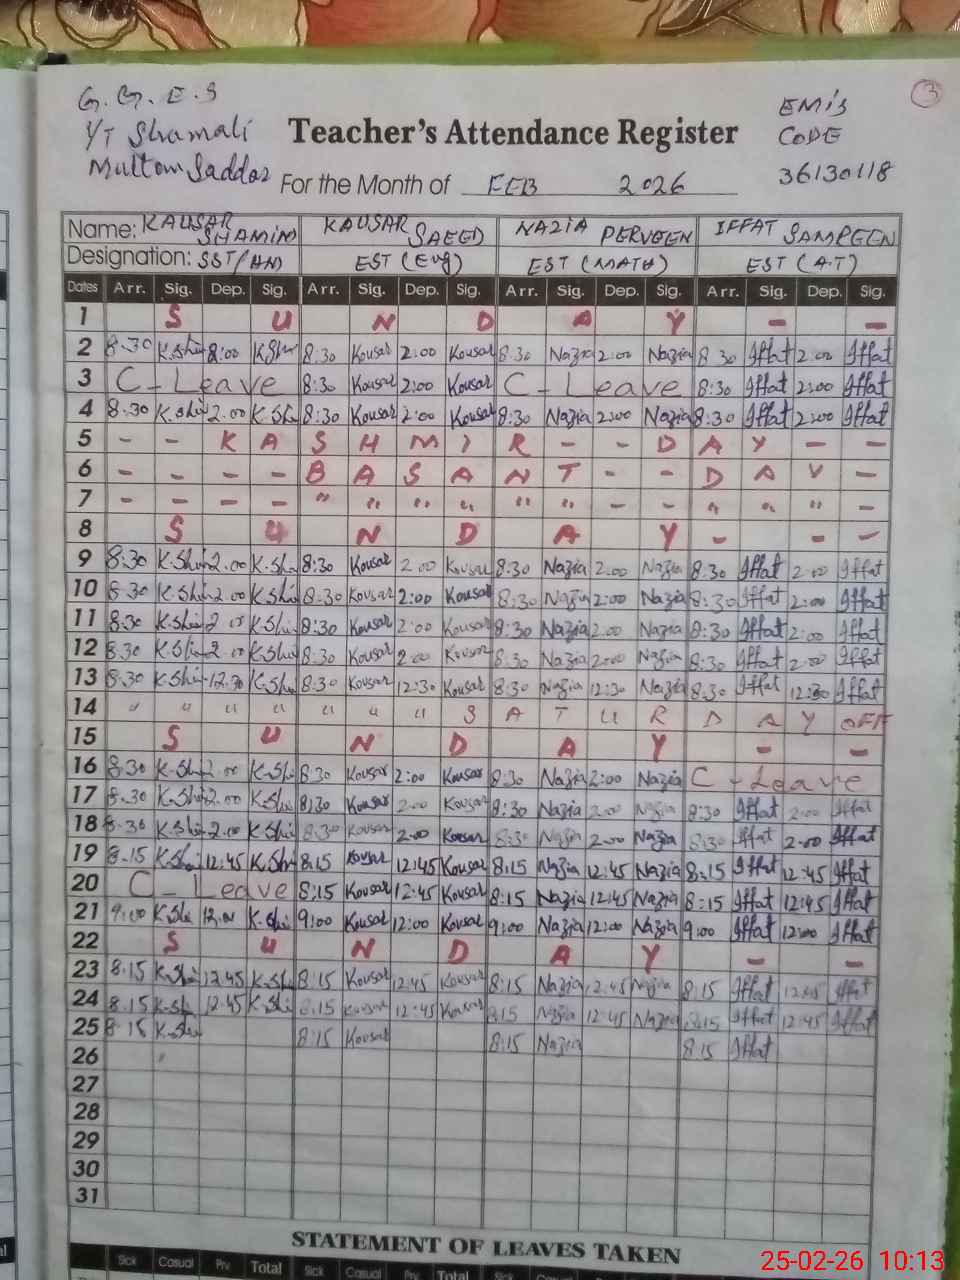 G. G. E. S
3
EMIS
Y/T Shamali
Teacher's Attendance Register
CODE
Multan Saddar
For the Month of FEB 2026
36130118
Name: KAUSAR SHAMIM KAUSAR SAEED NAZIA PERVEEN IFFAT SAMREEN
Designation: SST/HM EST (Eng) EST (MATH) EST (A.T)
Dates Arr. Sig. Dep. Sig. Arr. Sig. Dep. Sig. Arr. Sig. Dep. Sig. Arr. Sig. Dep. Sig.
1 S U N D A Y - -
2 8:30 K.Shi 8:00 K.Shi 8:30 Kousar 2:00 Kousar 8:30 Nazia 2:00 Nazia 8:30 Iffat 2:00 Iffat
3 C - Leave 8:30 Kousar 2:00 Kousar C - Leave 8:30 Iffat 2:00 Iffat
4 8:30 K.Shi 2:00 K.Shi 8:30 Kousar 2:00 Kousar 8:30 Nazia 2:00 Nazia 8:30 Iffat 2:00 Iffat
5 - - K A S H M I R - - D A Y - -
6 - - - - B A S A N T - - D A Y -
7 - - - - " " " " " " - - " " " -
8 S U N D A Y - - -
9 8:30 K.Shi 2:00 K.Shi 8:30 Kousar 2:00 Kousar 8:30 Nazia 2:00 Nazia 8:30 Iffat 2:00 Iffat
10 8:30 K.Shi 2:00 K.Shi 8:30 Kousar 2:00 Kousar 8:30 Nazia 2:00 Nazia 8:30 Iffat 2:00 Iffat
11 8:30 K.Shi 2:00 K.Shi 8:30 Kousar 2:00 Kousar 8:30 Nazia 2:00 Nazia 8:30 Iffat 2:00 Iffat
12 8:30 K.Shi 2:00 K.Shi 8:30 Kousar 2:00 Kousar 8:30 Nazia 2:00 Nazia 8:30 Iffat 2:00 Iffat
13 8:30 K.Shi 12:30 K.Shi 8:30 Kousar 12:30 Kousar 8:30 Nazia 12:30 Nazia 8:30 Iffat 12:30 Iffat
14 " " " " " " " S A T U R D A Y OFF
15 S U N D A Y - -
16 8:30 K.Shi 2:00 K.Shi 8:30 Kousar 2:00 Kousar 8:30 Nazia 2:00 Nazia C - Leave
17 8:30 K.Shi 2:00 K.Shi 8:30 Kousar 2:00 Kousar 8:30 Nazia 2:00 Nazia 8:30 Iffat 2:00 Iffat
18 8:30 K.Shi 2:00 K.Shi 8:30 Kousar 2:00 Kousar 8:30 Nazia 2:00 Nazia 8:30 Iffat 2:00 Iffat
19 8:15 K.Shi 12:45 K.Shi 8:15 Kousar 12:45 Kousar 8:15 Nazia 12:45 Nazia 8:15 Iffat 12:45 Iffat
20 C - Leave 8:15 Kousar 12:45 Kousar 8:15 Nazia 12:45 Nazia 8:15 Iffat 12:45 Iffat
21 9:00 K.Shi 12:00 K.Shi 9:00 Kousar 12:00 Kousar 9:00 Nazia 12:00 Nazia 9:00 Iffat 12:00 Iffat
22 S U N D A Y - -
23 8:15 K.Shi 12:45 K.Shi 8:15 Kousar 12:45 Kousar 8:15 Nazia 12:45 Nazia 8:15 Iffat 12:45 Iffat
24 8:15 K.Shi 12:45 K.Shi 8:15 Kousar 12:45 Kousar 8:15 Nazia 12:45 Nazia 8:15 Iffat 12:45 Iffat
25 8:15 K.Shi 8:15 Kousar 8:15 Nazia 8:15 Iffat
26
27
28
29
30
31
STATEMENT OF LEAVES TAKEN
Sick Casual Prv Total Sick Casual Prv Total Sick Casual
25-02-26 10:13